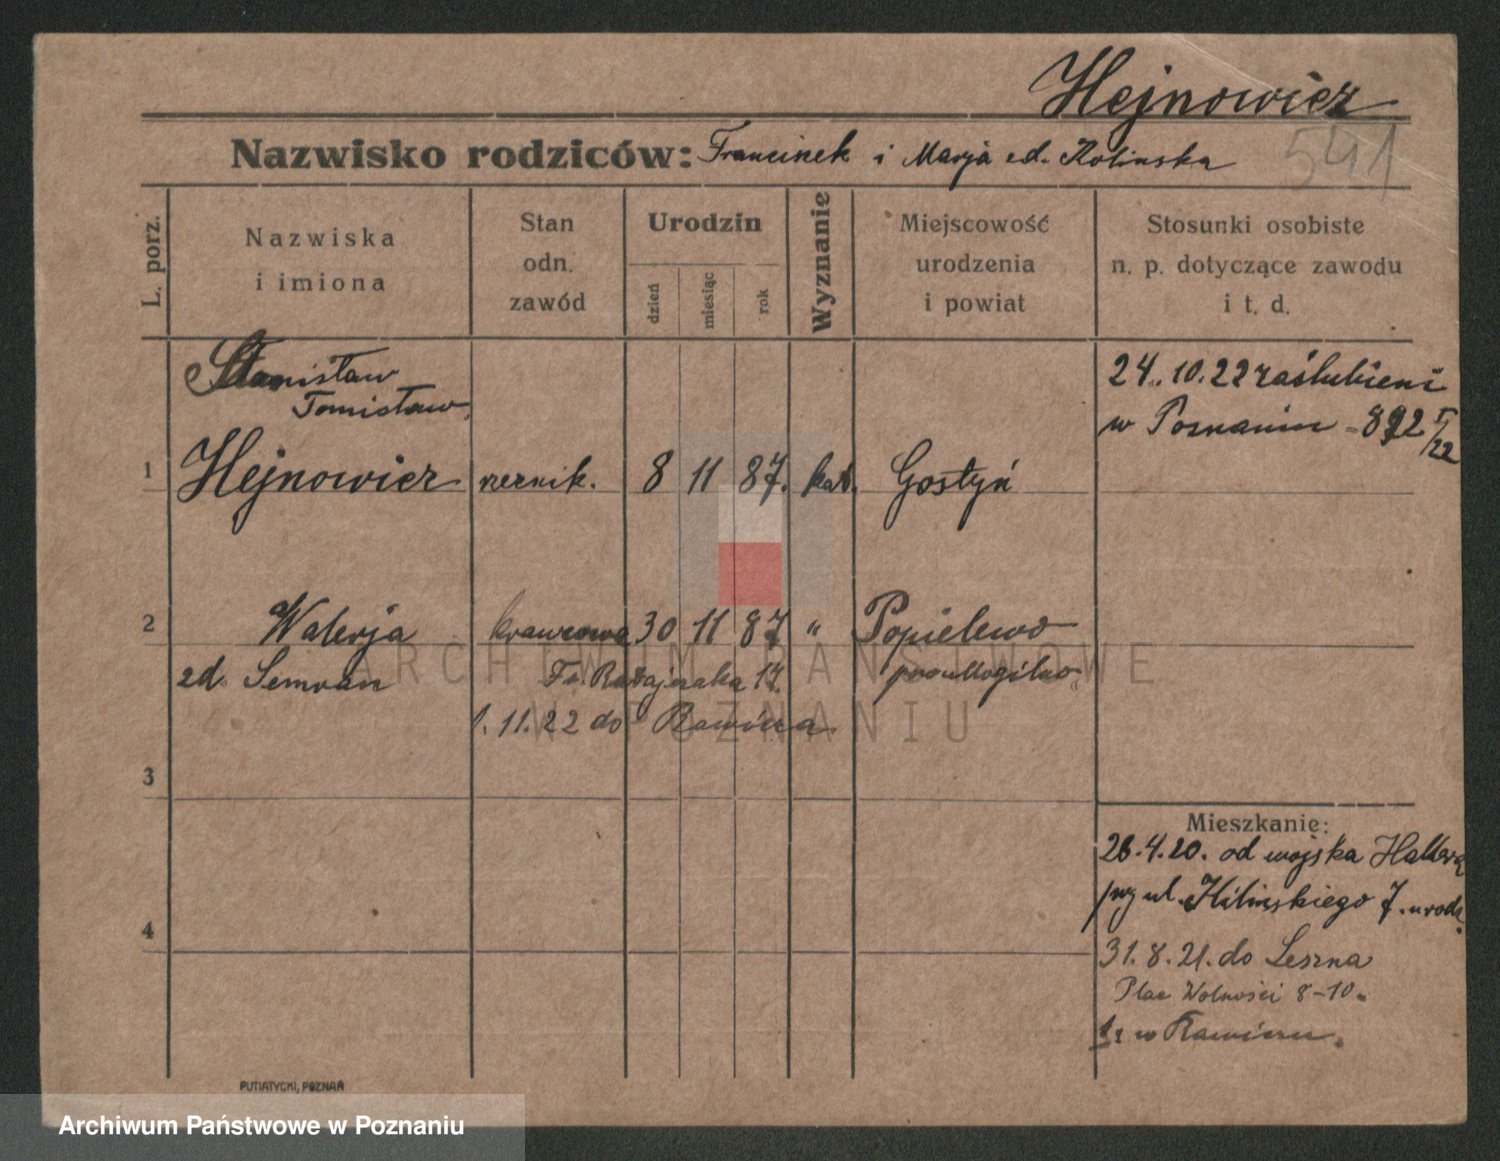 Hejnowicz
541
Nazwisko rodziców: Franciszek i Marja zd. Kolinska
L. porz.
Nazwiska i imiona
Stan odn. zawód
Urodzin
dzień
miesiąc
rok
Wyznanie
Miejscowość urodzenia i powiat
Stosunki osobiste n. p. dotyczące zawodu i t. d.
Stanisław
Tomisław
24. 10. 22 zaślubieni
w Poznaniu
1 Hejnowicz rzeźnik. 8 11 87. kat. Gostyń
2 Walerja krawcowa 30 11 87 " Popielewo
zd. Semran Fr. Ratajczaka 17. pow Mogilno
1. 11. 22 do Rawicza
3
Mieszkanie:
26. 4. 20. od wojska Hallera
przy ul. Kilińskiego 7. u rodz.
4
31. 8. 21. do Leszna
Plac Wolności 8-10.
w Rawiczu.
PUTIATYCKI, POZNAŃ
ARCHIWUM PAŃSTWOWE
W POZNANIU
Archiwum Państwowe w Poznaniu